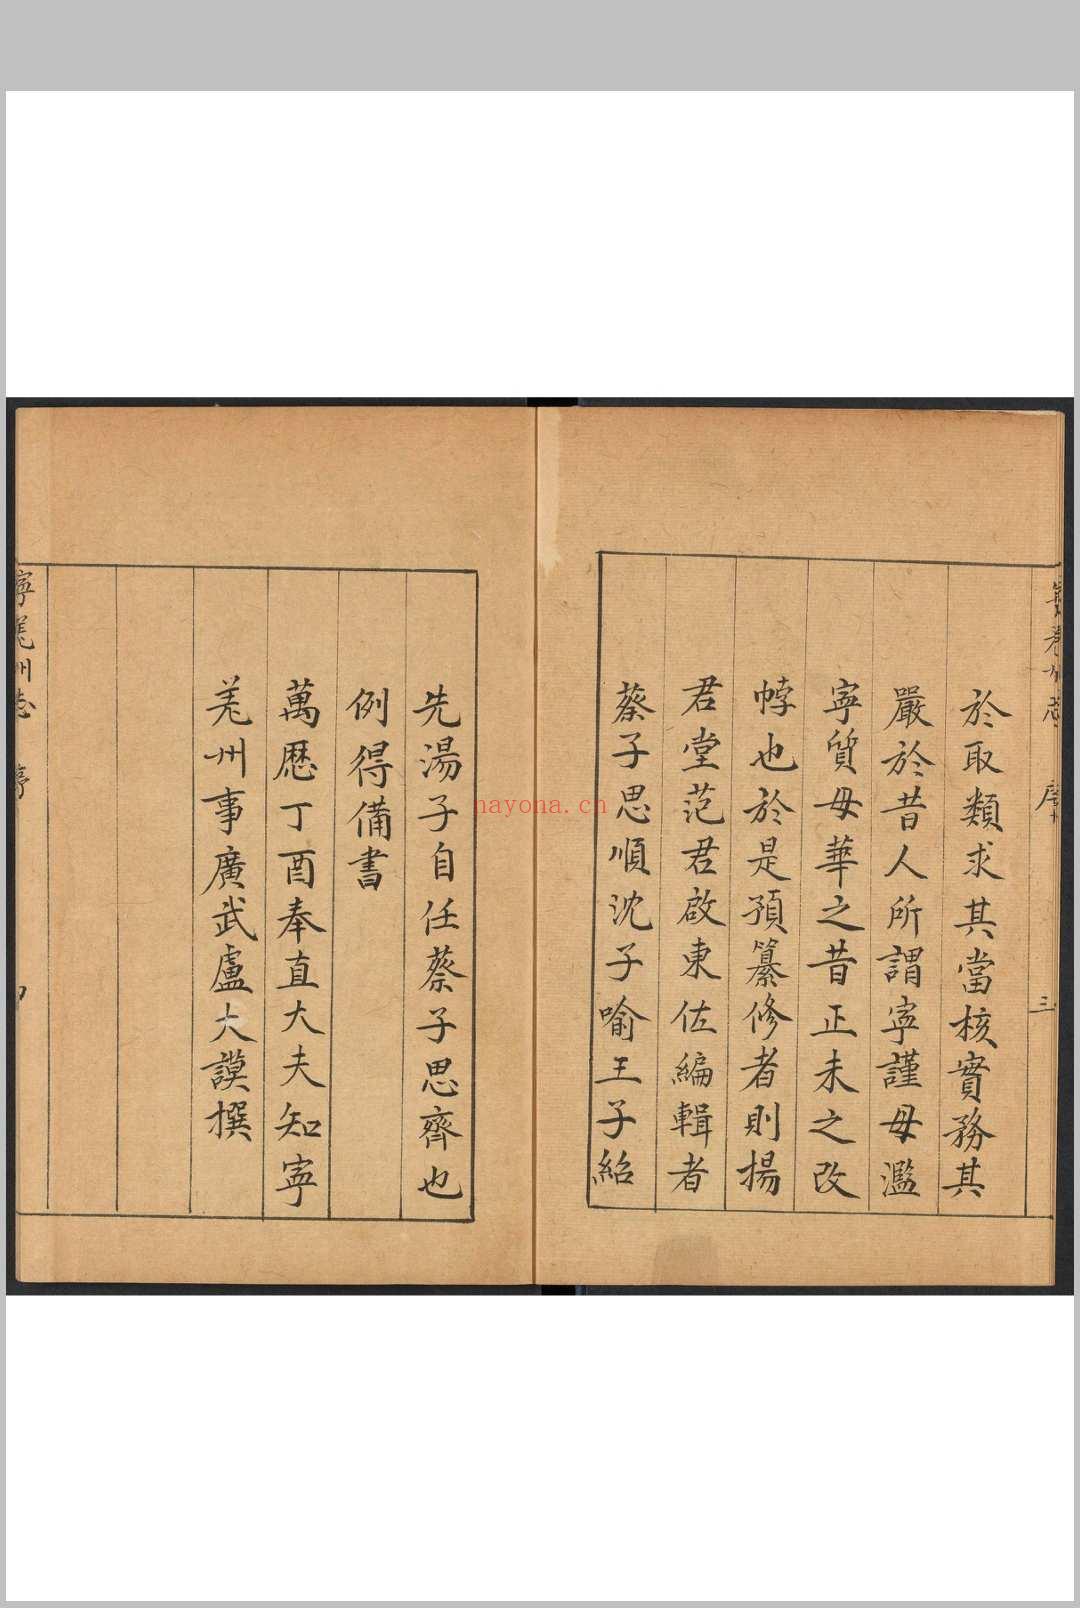 寧羗州志 序 三
於取類求其當核實務其
嚴於昔人所謂寧謹毋濫
寧質毋華之昔正未之改
悖也於是預纂修者則揚
君堂范君啟東佐編輯者
蔡子思順沈子喻王子紹
先湯子自任蔡子思齊也
例得備書
萬歷丁酉奉直大夫知寧
羗州事廣武盧大謨撰
寧羗州志 序
nayona.cn